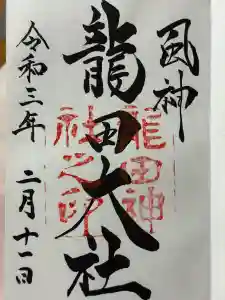 風神
龍田大社
龍田神
社之印
令和三年
二月十一日